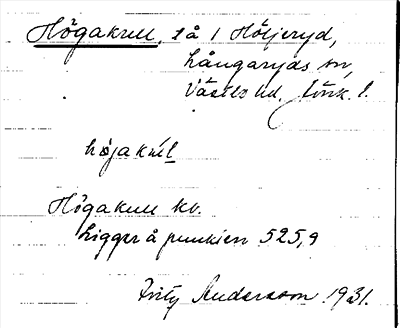 Högakull, på 1 Höljeryd,
Långaryds sn,
Västbo hd. Jönk. l.
högakúl
Högakull kb.
Ligger å punkten 525,9
Fritz Andersson 1931.